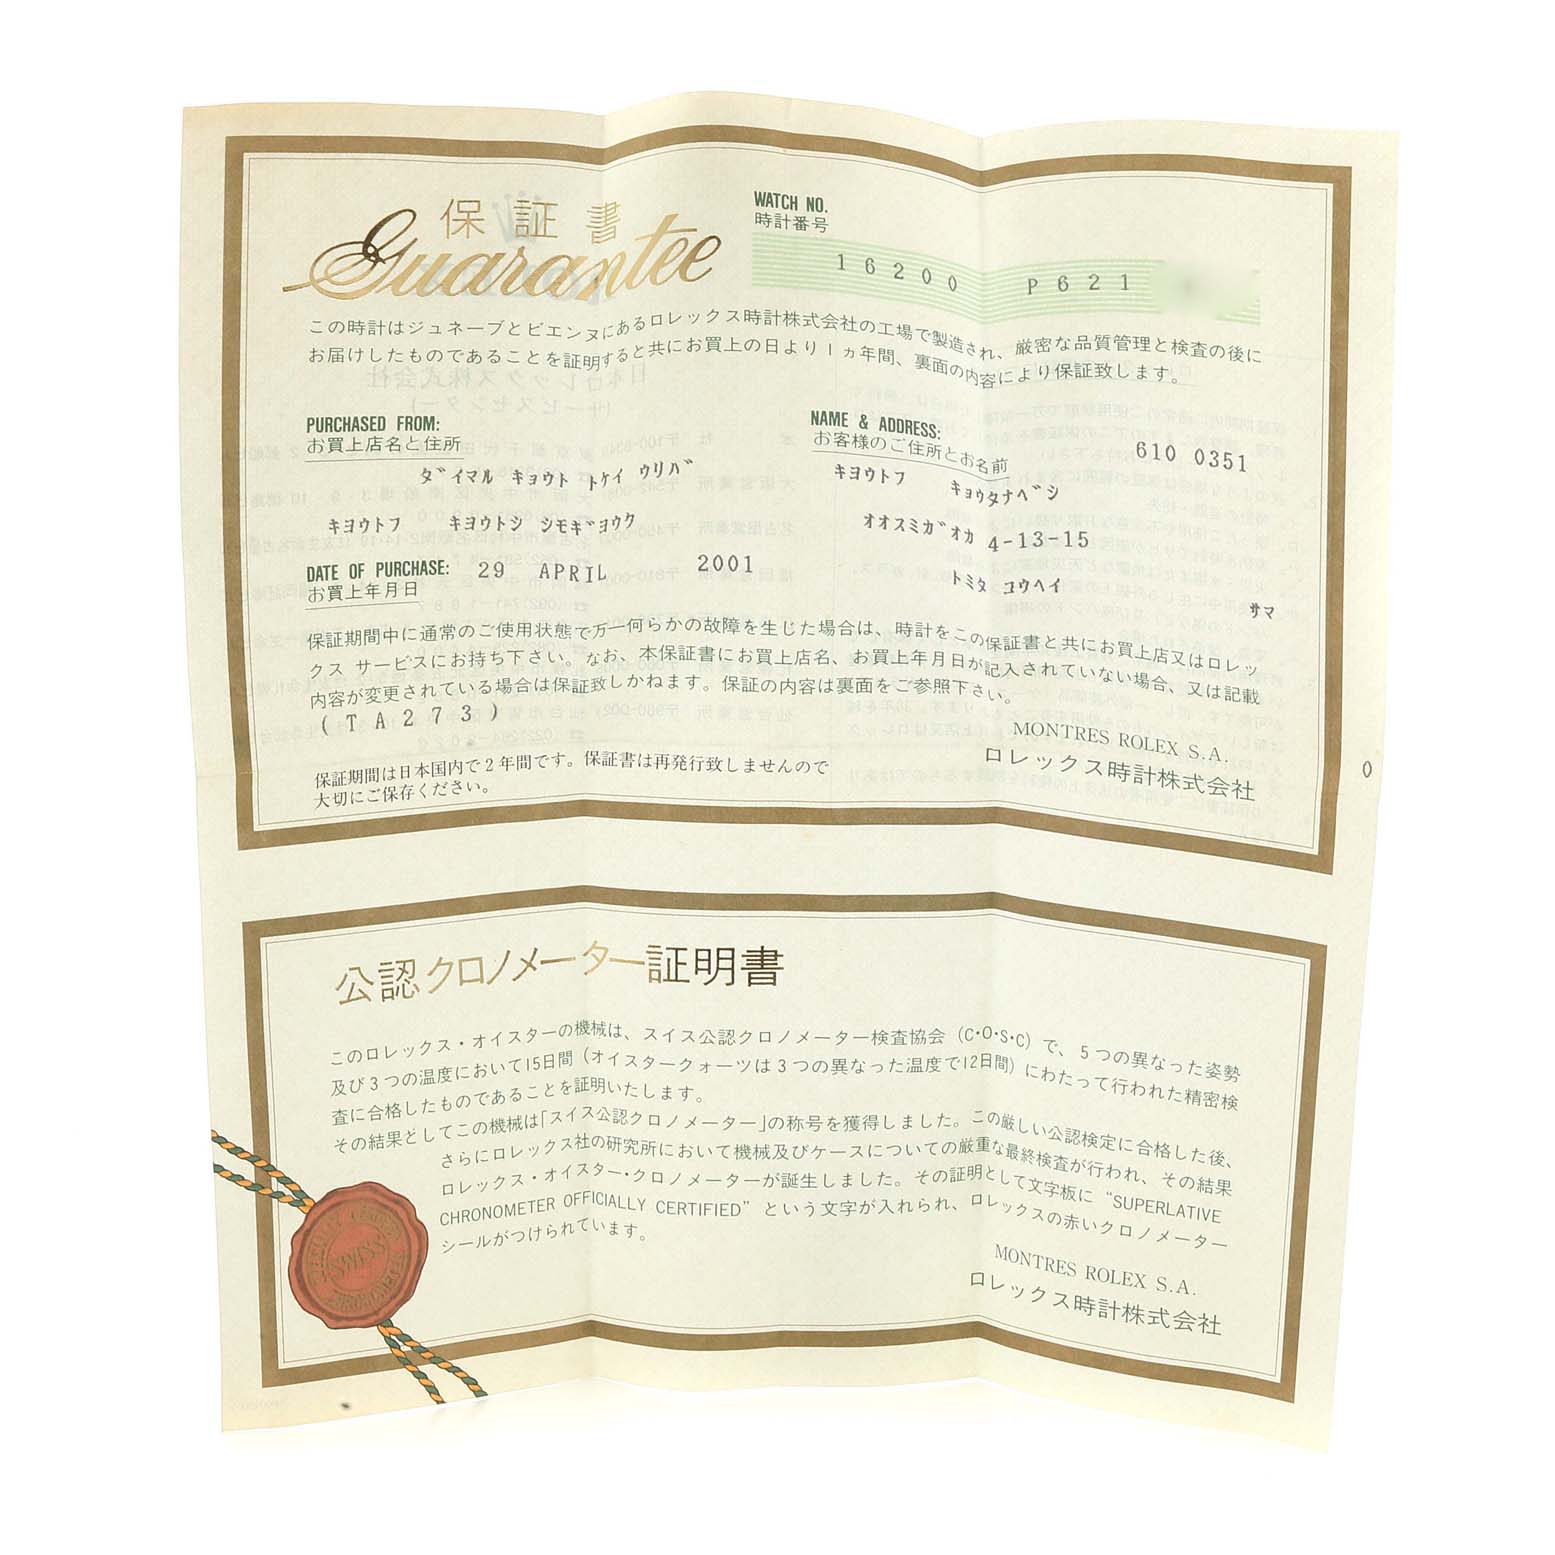 保証書
Guarantee
WATCH NO.
時計番号
16200 P621
この時計はジュネーブとビエンヌにあるロレックス時計株式会社の工場で製造され、厳密な品質管理と検査の後に
お届けしたものであることを証明すると共にお買上の日より1ヵ年間、裏面の内容により保証致します。
PURCHASED FROM:
お買上店名と住所
ダイマル キョウト トケイ ウリバ
キヨウトフ キヨウトシ シモギヨウク
NAME & ADDRESS:
お客様のご住所とお名前
610 0351
キヨウトフ キョウタナベシ
オオスミガオカ 4-13-15
トミタ コウヘイ
サマ
DATE OF PURCHASE: 29 APRIL 2001
お買上年月日
保証期間中に通常のご使用状態で万一何らかの故障を生じた場合は、時計をこの保証書と共にお買上店又はロレッ
クス サービスにお持ち下さい。なお、本保証書にお買上店名、お買上年月日が記入されていない場合、又は記載
内容が変更されている場合は保証致しかねます。保証の内容は裏面をご参照下さい。
(TA273)
MONTRES ROLEX S.A.
ロレックス時計株式会社
保証期間は日本国内で2年間です。保証書は再発行致しませんので
大切にご保存ください。
0
公認クロノメーター証明書
このロレックス・オイスターの機械は、スイス公認クロノメーター検査協会(C・O・S・C)で、5つの異なった姿勢
及び3つの温度において15日間(オイスタークォーツは3つの異なった温度で12日間)にわたって行われた精密検
査に合格したものであることを証明いたします。
その結果としてこの機械は「スイス公認クロノメーター」の称号を獲得しました。この厳しい公認検定に合格した後、
さらにロレックス社の研究所において機械及びケースについての厳重な最終検査が行われ、その結果
ロレックス・オイスター・クロノメーターが誕生しました。その証明として文字板に "SUPERLATIVE
CHRONOMETER OFFICIALLY CERTIFIED" という文字が入れられ、ロレックスの赤いクロノメーター
シールがつけられています。
MONTRES ROLEX S.A.
ロレックス時計株式会社
SWISS